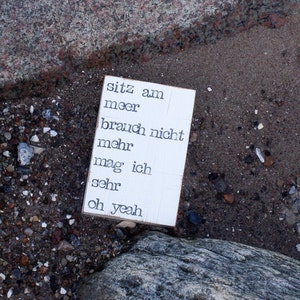 sitz am
meer
brauch nicht
mehr
mag ich
sehr
oh yeah